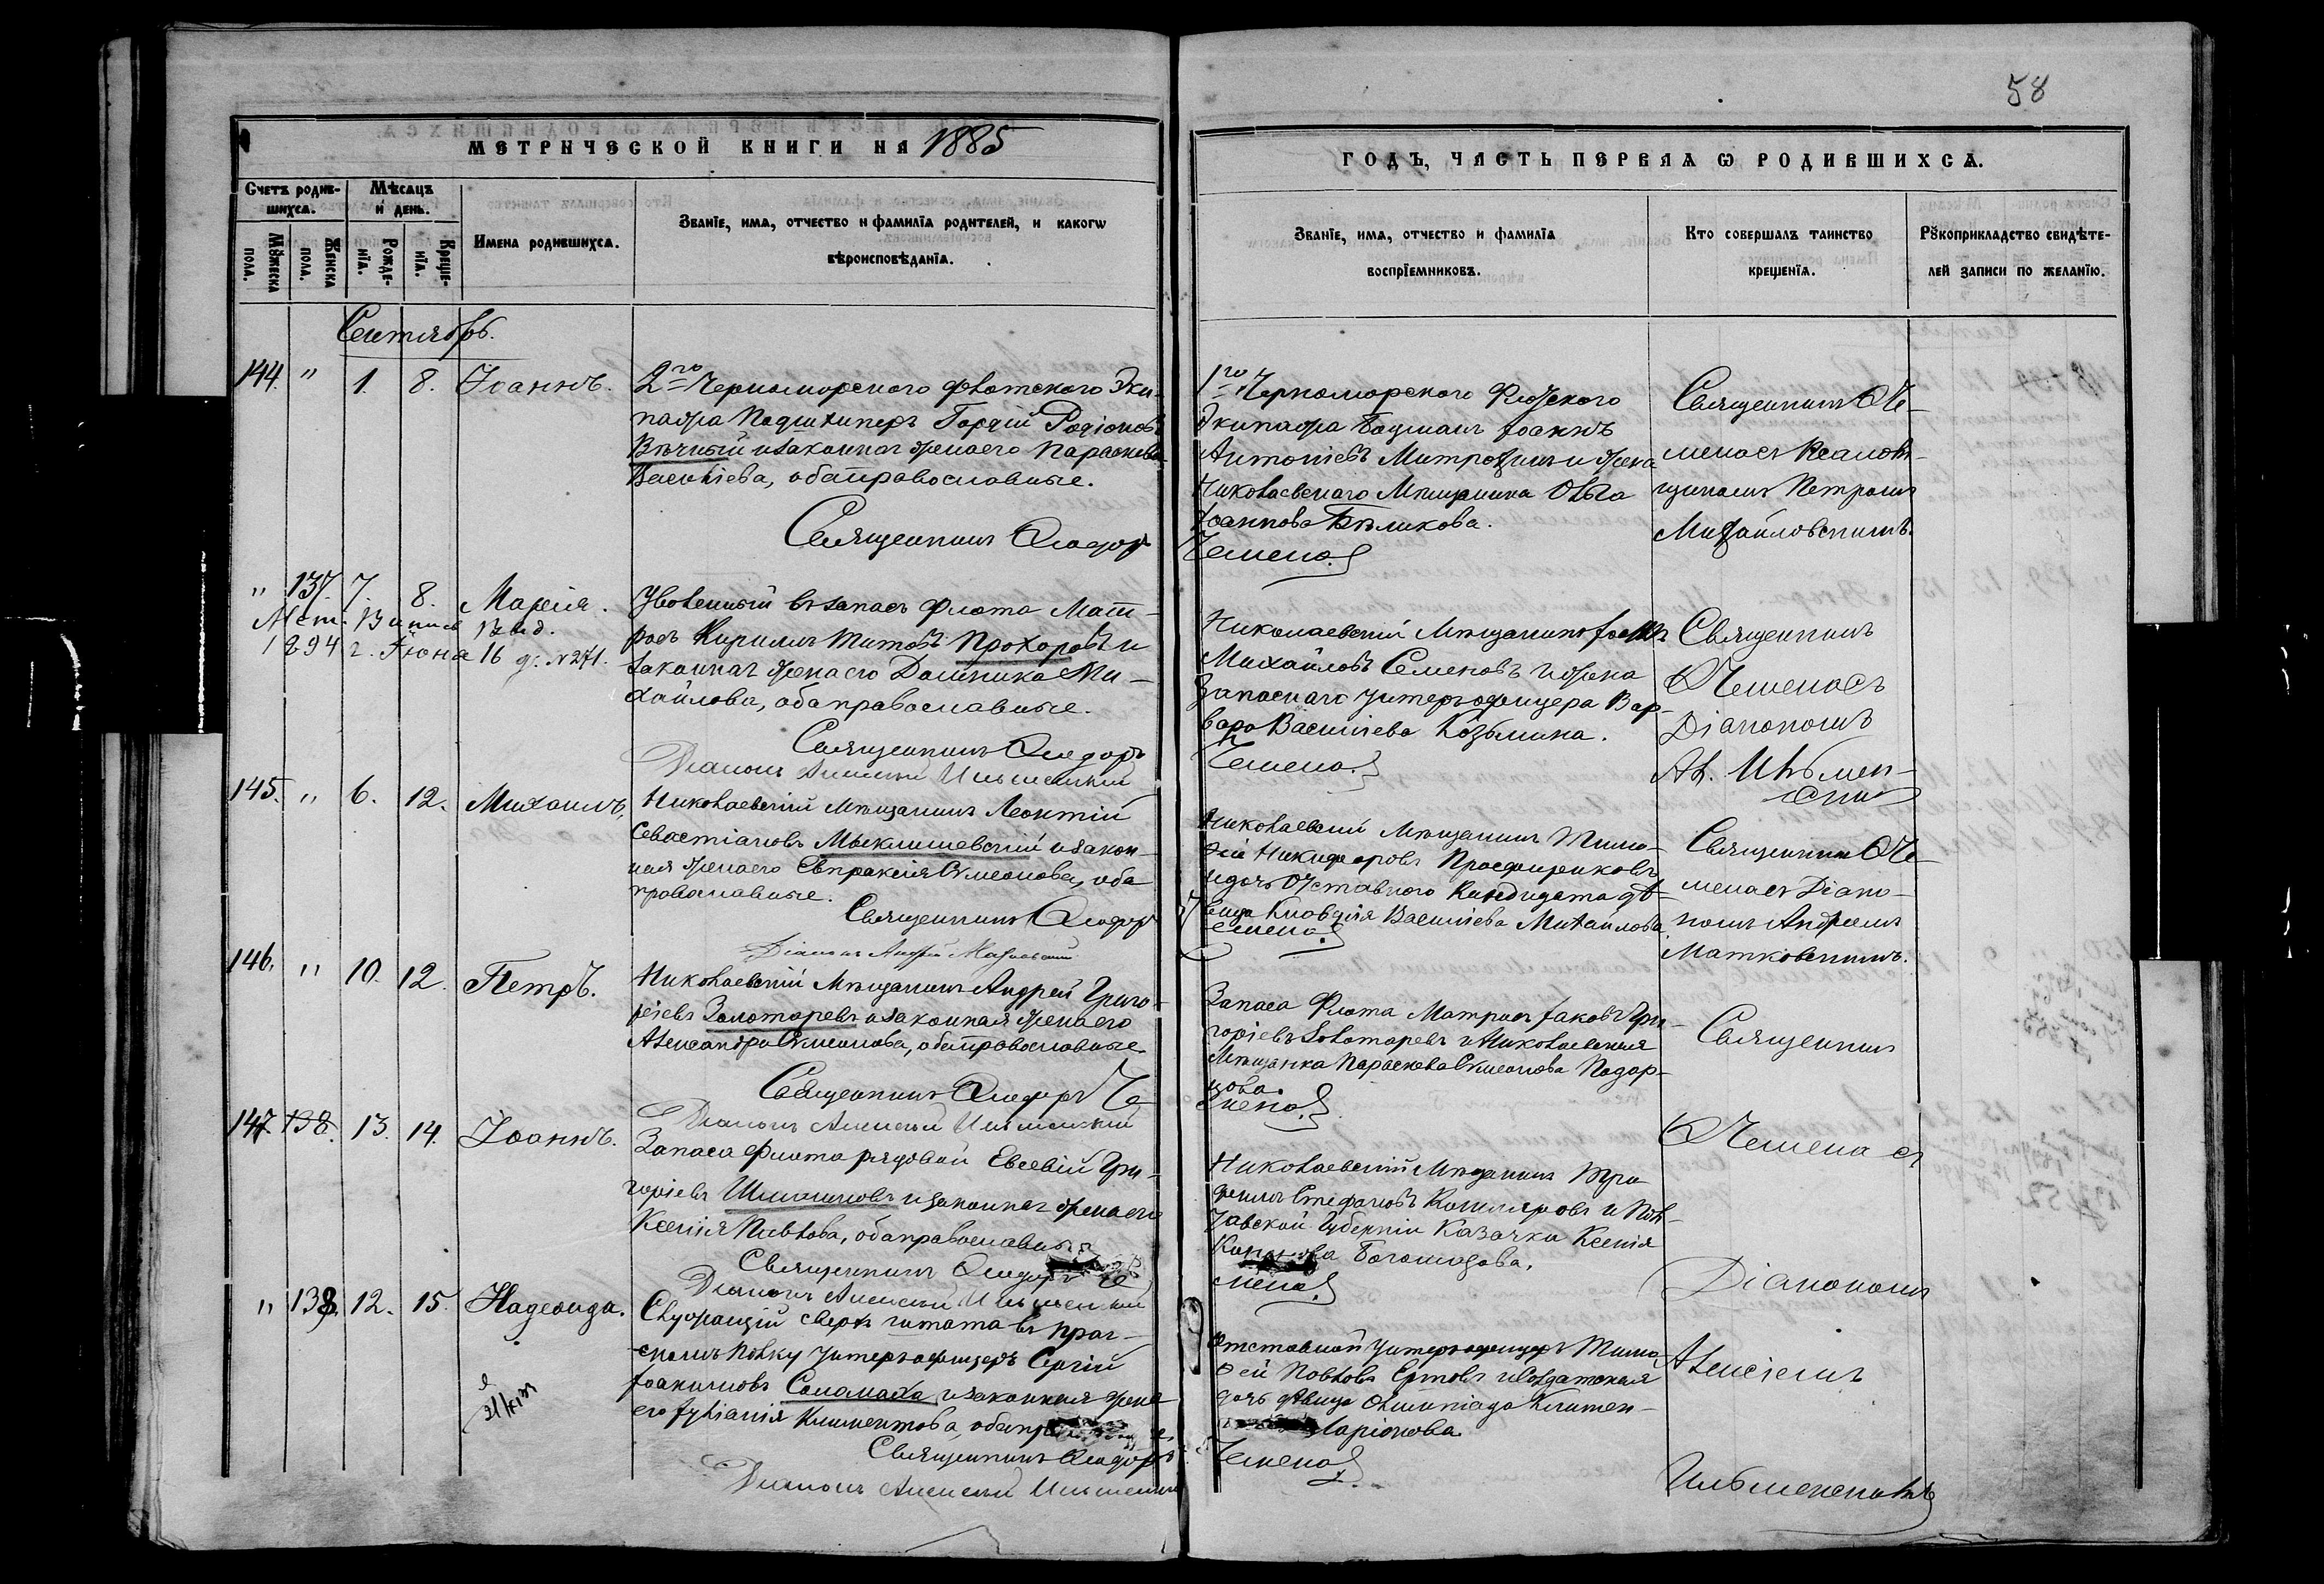 58
МЕТРИЧЕСКОЙ КНИГИ НА 1885
ГОДЪ, ЧАСТЬ ПЕРВАЯ Ѡ РОДИВШИХСЯ.
Счетъ родив-
шихся.
Мѣсяцъ
и день.
Мꙋжеска
пола.
Женска
пола.
Рожде-
нїя.
Креще-
нїя.
Имена родившихся.
Званїе, имя, отчество и фамилїя родителей, и какогѡ
вѣроисповѣданїя.
Званїе, имя, отчество и фамилїя
воспрїемниковъ.
Кто совершалъ таинство
крещенїя.
Рꙋкоприкладство свидѣте-
лей записи по желанїю.
Сентябрь.
144. " 1. 8. Іоаннъ.
2го Черноморского флотского Эки-
пажа Подшкиперъ Гордій Родіоновъ
Вѣчный и законная жена его Параскева
Васильева, оба православные.
Священникъ Ѳеодоръ
1го Черноморского Флотского
Экипажа Боцманъ Іоаннъ
Антоніевъ Митрохинъ и жена
Николаевского Мѣщанина Ольга
Іоаннова Бѣликова.
Чемена.
Священникъ Ѳ. Че-
меной съ Псалом-
щикомъ Петромъ
Михайловскимъ.
" 137. 7. 8. Марія.
Мет. Выпись выд.
1894 г. Іюна 16 д. № 271.
Уволенный въ запасъ флота Мат-
росъ Кириллъ Титовъ Прохоровъ и
законная жена его Домникія Ми-
хайлова, оба православные.
Священникъ Ѳеодоръ
Діаконъ Алексій Ильменскій
Николаевскій Мѣщанинъ Іоаннъ
Михайловъ Семеновъ и жена
Запасного Унтеръ-офицера Вар-
вара Васильева Козьмина.
Чемена.
Священникъ
Ѳ. Чемена съ
Діакономъ
Ал. Ильмен-
скимъ
145. " 6. 12. Михаилъ.
Николаевскій Мѣщанинъ Леонтій
Севастіановъ Мыклишевскій и закон-
ная жена его Евпраксія Симеонова, оба
православные.
Священникъ Ѳеодоръ
Діаконъ Андрей Матковскій
Николаевскій Мѣщанинъ Тимо-
ѳей Никифоровъ
и дочь Отставного Кандидата дѣ-
вица Клавдія Васильева Михайлова
Чемена.
Священникъ Ѳ. Че-
мена съ Діако-
номъ Андреемъ
Матковскимъ.
146. " 10. 12. Петръ.
Николаевскій Мѣщанинъ Андрей Григо-
ріевъ Золотаревъ и законная жена его
Александра Симеонова, оба православные.
Священникъ Ѳеодоръ Че
Діаконъ Алексій Ильменскій
Запаса Флота Матросъ Іаковъ Гри-
горіевъ Золотаревъ и Николаевская
Мѣщанка Параскева Симеонова Подор-
цова.
мена.
Священникъ
147. 138. 13. 14. Іоаннъ.
Запаса Флота рядовой Евсевій Гри-
горіевъ и законная жена его
Ксенія Павлова, оба православные
Священникъ Ѳеодоръ Че
Діаконъ Алексій Ильменскій
Николаевскій Мѣщанинъ Тро-
фимъ Стефановъ и Пол-
тавской Губерніи Казачка Ксенія
Богомазова.
мена.
Ѳ. Чемена съ
Діакономъ
" 138. 12. 15. Надежда.
Служащій сверхъ штата въ Праж-
скомъ полку Унтеръ-офицеръ Сергій
Іоакимовъ Саламаха и законная жена
его Іуліанія Климентова, оба
Священникъ Ѳеодоръ
Діаконъ Алексій Ильменскій
Отставной Унтеръ-офицеръ Тимо-
ѳей Павловъ и Солдатская
дочь дѣвица Олимпіада Климен-
Ларіонова
Чемена
Алексіемъ
Ильменскимъ